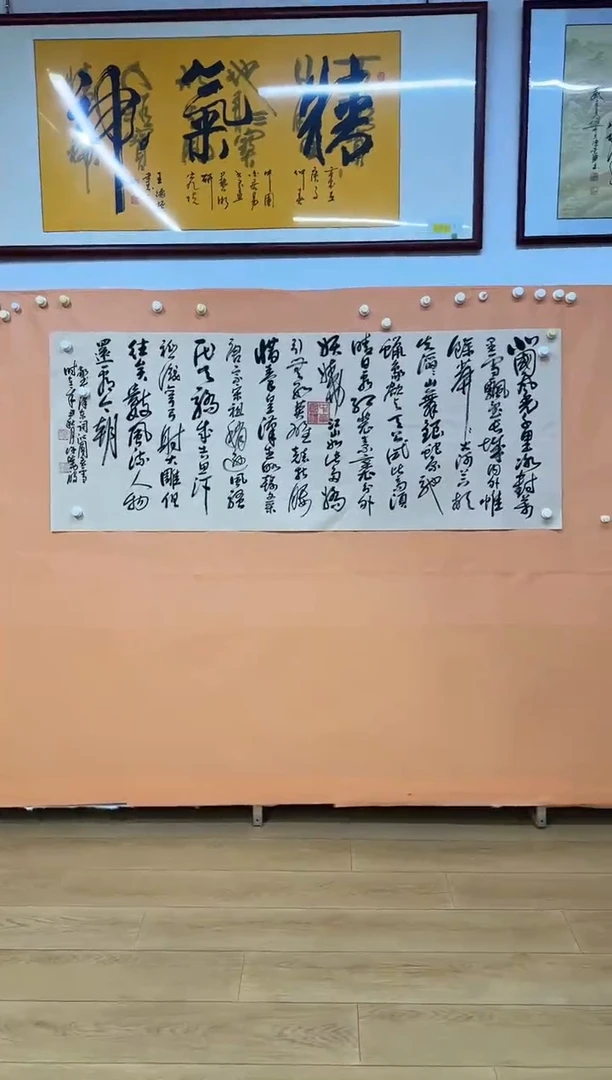 精氣神
中國
藝術
研
究院
北國風光千里冰封萬
里雪飄望長城內外惟
餘莽莽大河上下頓
失滔滔山舞銀蛇原馳
蠟象欲與天公試比高須
晴日看紅裝素裹分外
妖嬈江山如此多嬌
引無數英雄競折腰
惜秦皇漢武略輸文采
唐宗宋祖稍遜風騷一
代天驕成吉思汗
祇識彎弓射大雕俱
往矣數風流人物
還看今朝
毛澤東詞沁園春雪